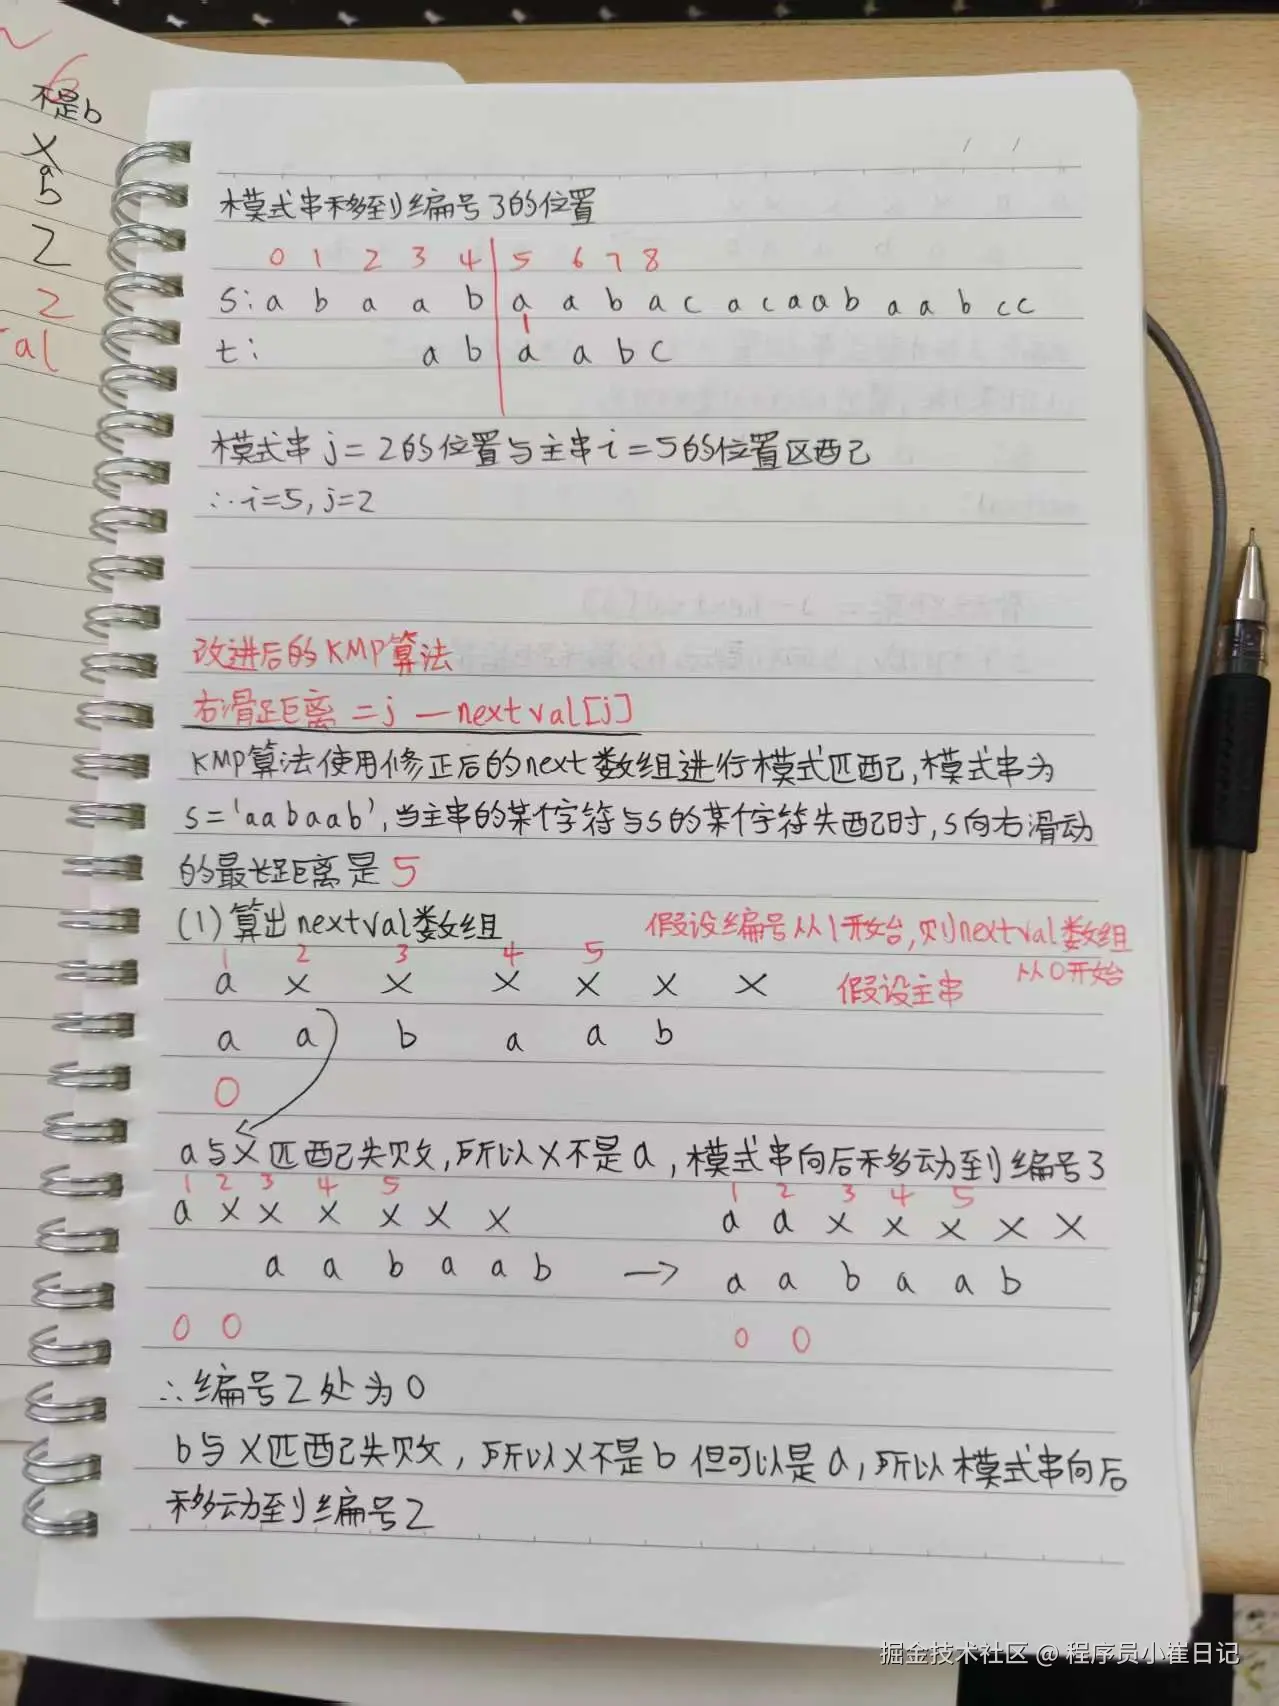 不是b
x
a
b
2
2
al
模式串移到编号3的位置
0 1 2 3 4 5 6 7 8
s: a b a a b a a b a c a c a a b a a b c c
t: a b a a b c
模式串j=2的位置与主串i=5的位置匹配
∴i=5,j=2
改进后的KMP算法
右滑距离=j—nextval[j]
KMP算法使用修正后的next数组进行模式匹配,模式串为
s='aabaab',当主串的某个字符与s的某个字符失配时,s向右滑动
的最长距离是5
(1)算出nextval数组 假设编号从1开始,则nextval数组
从0开始
1 2 3 4 5
a x x x x x x 假设主串
a a b a a b
0
a与x匹配失败,所以x不是a,模式串向后移动到编号3
1 2 3 4 5 1 2 3 4 5
a x x x x x x a a x x x x x
a a b a a b → a a b a a b
0 0 0 0
∴编号2处为0
b与x匹配失败,所以x不是b但可以是a,所以模式串向后
移动到编号2
掘金技术社区 @ 程序员小崔日记